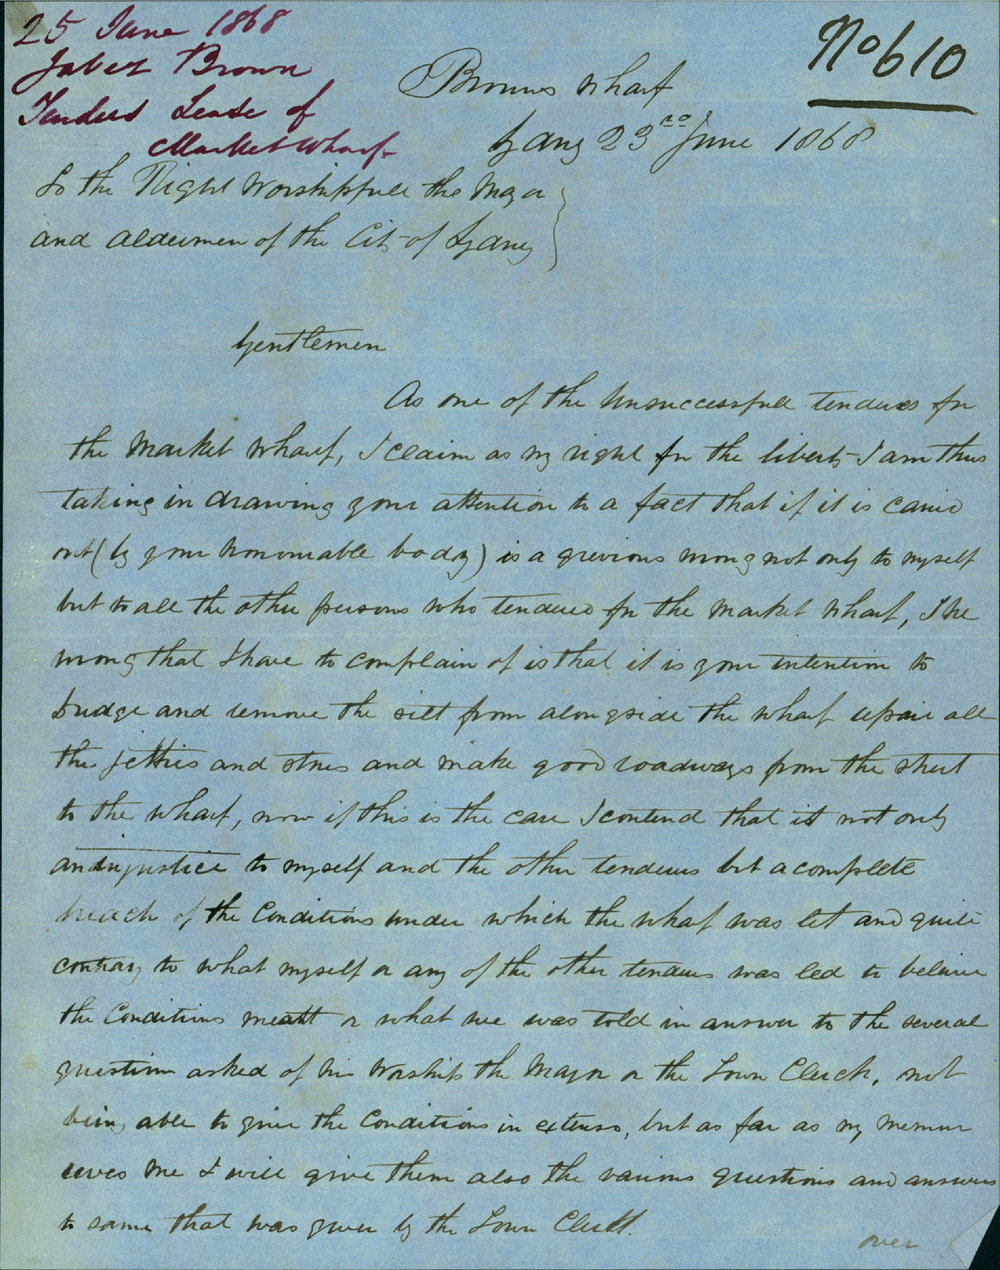 25 June 1868
Jabez Brown
Tenders Lease of
Market Wharf
No 610
Browns Wharf
Sydny 23rd June 1868
To the Right Worshipfull the Mayor
and Aldermen of the City of Sydney
Gentlemen
As one of the Unsuccessfull tenderes for
the Market Wharf, I claim as my right for the liberty I am thus
taking in drawing your attention to a fact that if it is carried
out (by your honourable body) is a grevious wrong not only to myself
but to all the other persons who tendered for the Market Wharf, The
wrong that I have to complain of is that it is your intention to
Dredge and remove the silt from alongside the wharf repair all
the jetties and stores and make good roadways from the street
to the wharf, now if this is the case I contend that it not only
an injustice to myself and the other tenderers but a complete
breach of the Conditions under which the wharf was let and quite
contrary to what myself or any of the other tenderers was led to believe
the Conditions meant or what we was told in answer to the several
question asked of his Worship the Mayor or the Town Clerk, not
being able to give the Conditions in extenso, but as far as my memory
serves me I will give them also the various questions and answers
to same that was given by the Town Clerk.
over